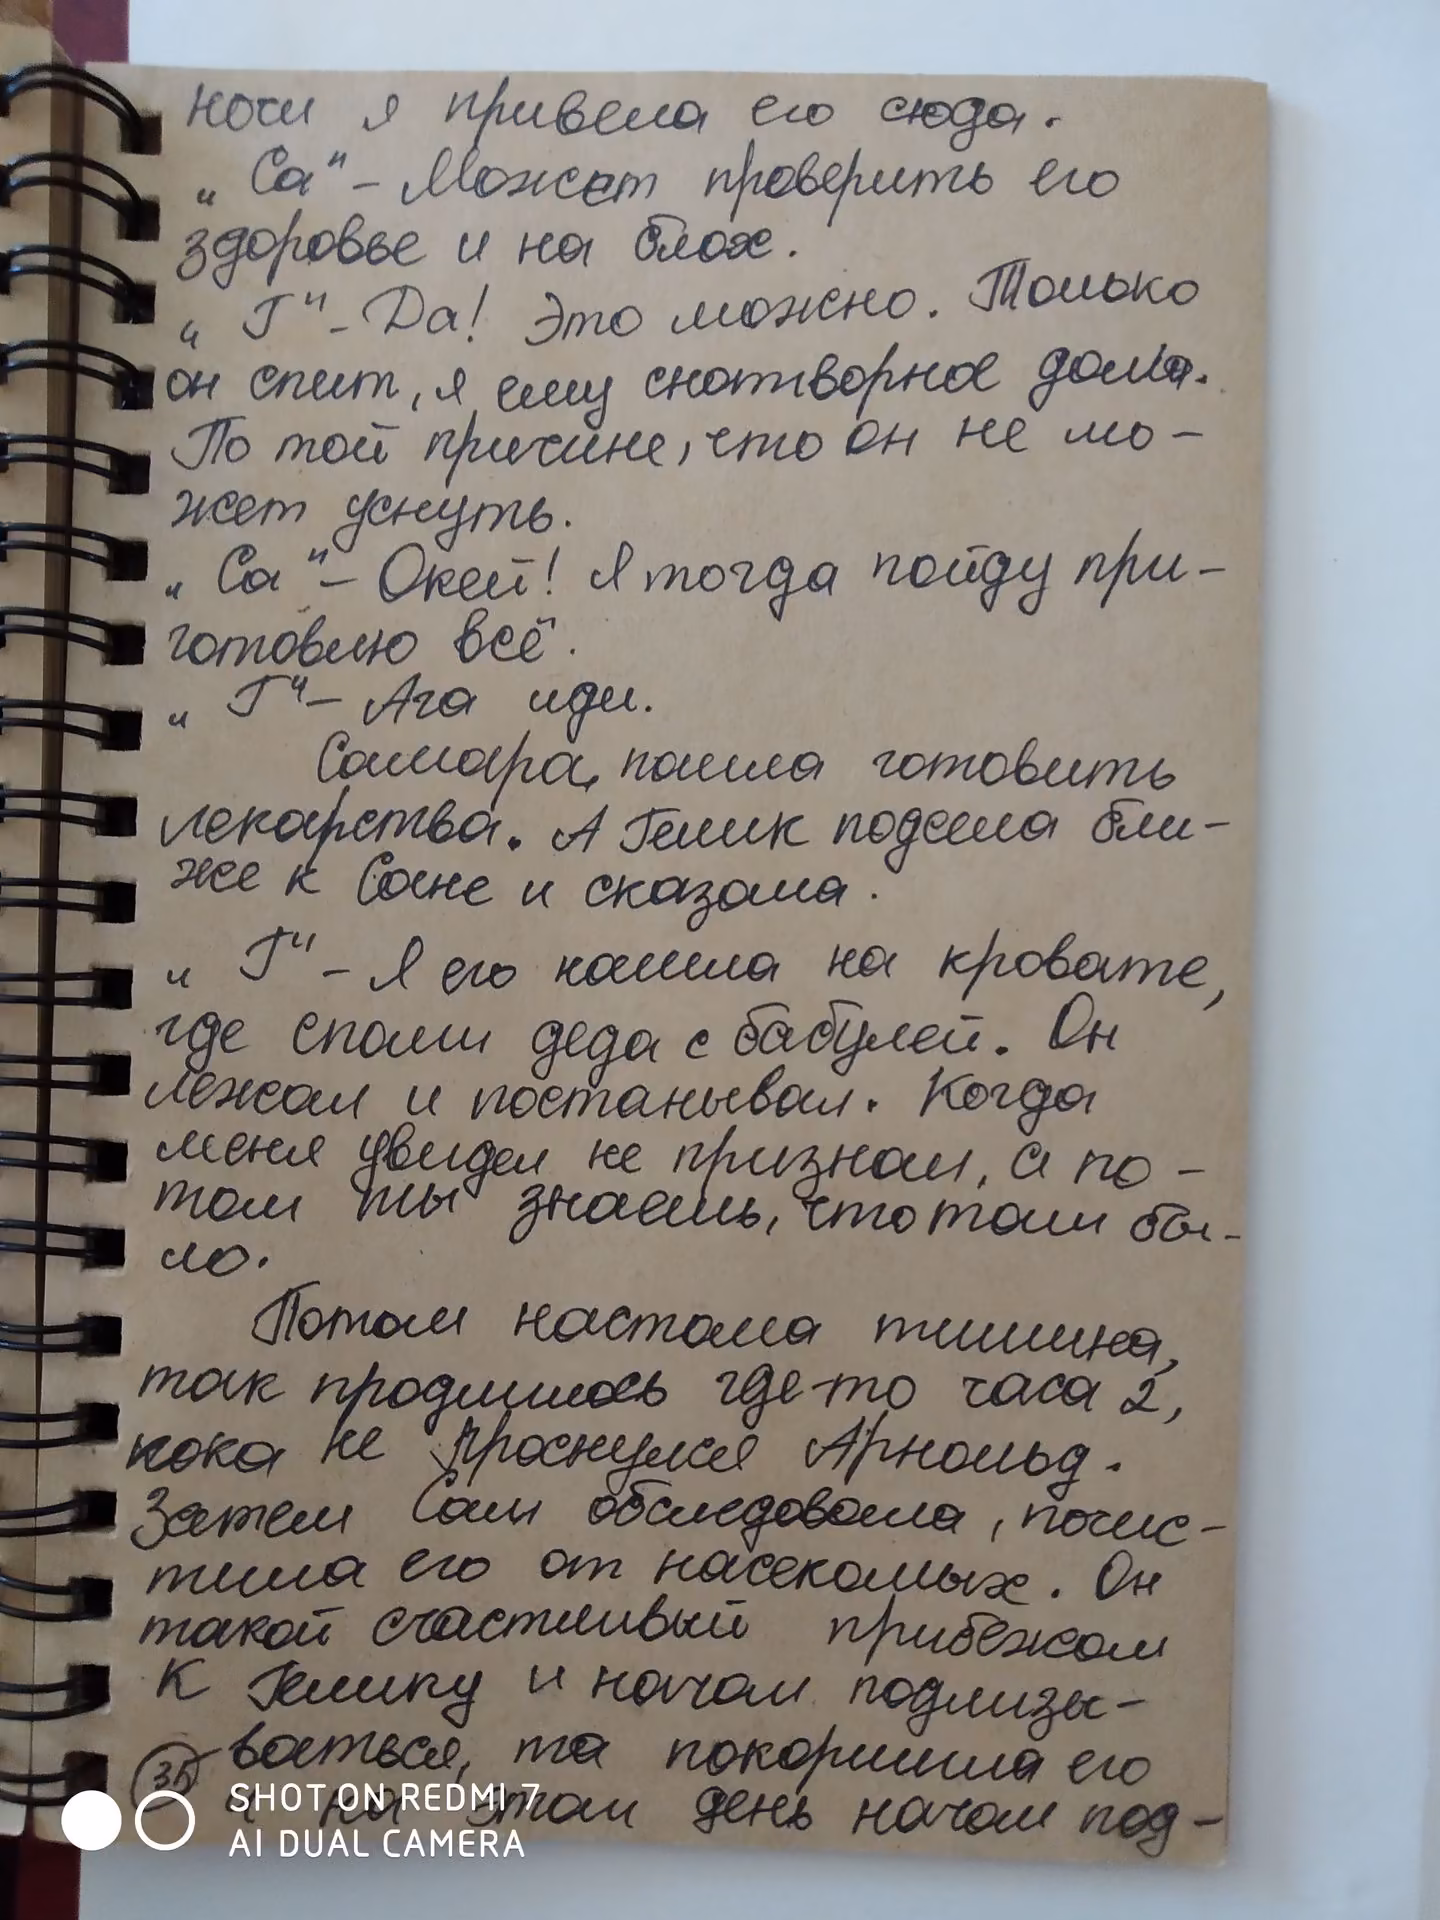 ночи я привела его сюда.
„Са" – Можст проверить его
здоровье и на блох.
„Г" – Да! Это можно. Только
он спит, я ему снотворное дома.
По той причине, что он не мо-
жет уснуть.
„Са" – Окей! Я тогда пойду при-
готовлю всё.
„Г" – Ага иди.
Самара, пошла готовить
лекарства. А Гелик подсела бли-
же к Сане и сказала.
„Г" – Я его нашла на кровате,
где спали деда с бабулей. Он
лежал и постанывал. Когда
меня увидел не признал, а по-
том ты знаешь, что там бы-
ло.
Потом настала тишина,
так продлилось где-то часа 2,
пока не проснулся Арнольд.
Затем Сам обследовала, почис-
тила его от насекомых. Он
такой счастливый прибежал
к Гелику и начал подлизы-
ваться, та покормила его
35 и на этом день начал под-
SHOT ON REDMI 7
AI DUAL CAMERA